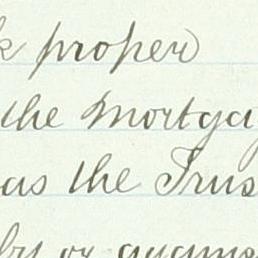 k proper
the Mortga
as the Trus
by or